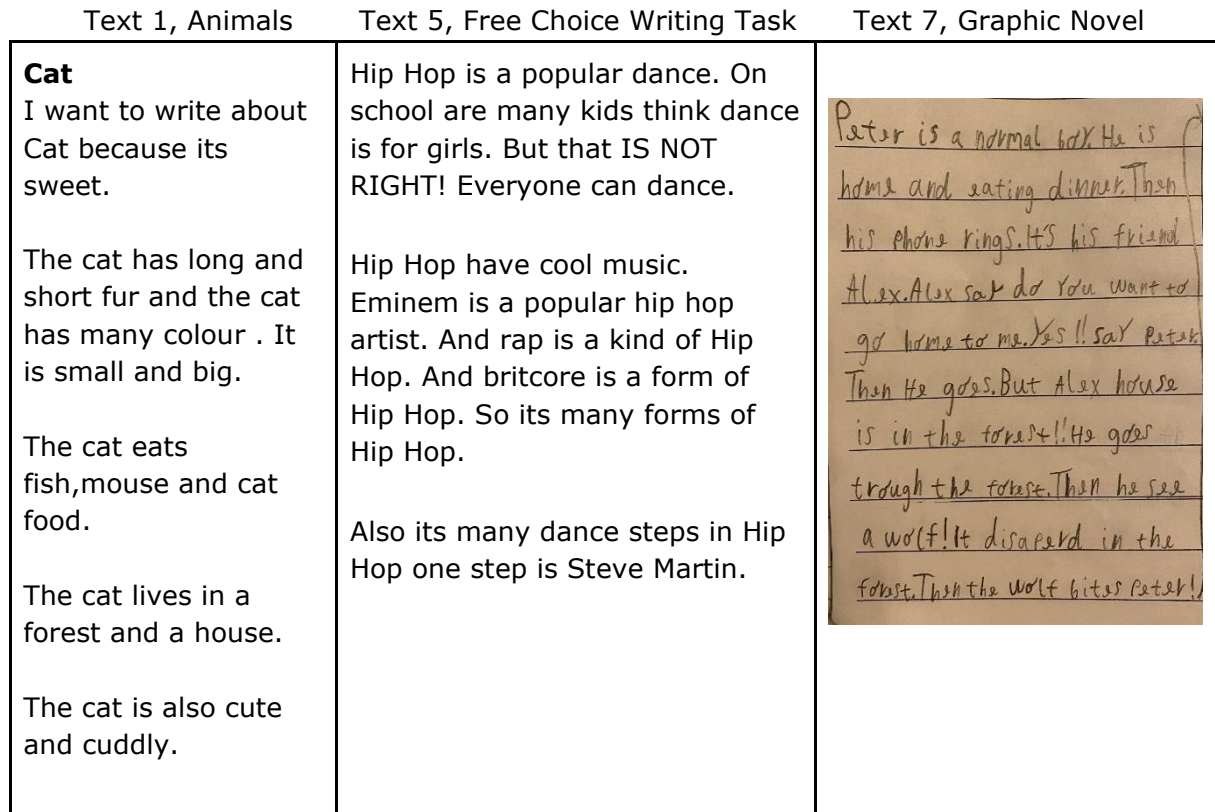 Text 1, Animals
Text 5, Free Choice Writing Task
Text 7, Graphic Novel
Cat
I want to write about
Cat because its
sweet.
The cat has long and
short fur and the cat
has many colour . It
is small and big.
The cat eats
fish,mouse and cat
food.
The cat lives in a
forest and a house.
The cat is also cute
and cuddly.
Hip Hop is a popular dance. On
school are many kids think dance
is for girls. But that IS NOT
RIGHT! Everyone can dance.
Hip Hop have cool music.
Eminem is a popular hip hop
artist. And rap is a kind of Hip
Hop. And britcore is a form of
Hip Hop. So its many forms of
Hip Hop.
Also its many dance steps in Hip
Hop one step is Steve Martin.
Peter is a normal boy. He is
home and eating dinner. Then
his phone rings. It's his friend
Alex. Alex say do you want to
go home to me. Yes!! say Peter.
Then He goes. But Alex house
is in the forest!! He goes
trough the forest. Then he see
a wolf! It disaperd in the
forest. Then the wolf bites Peter!!